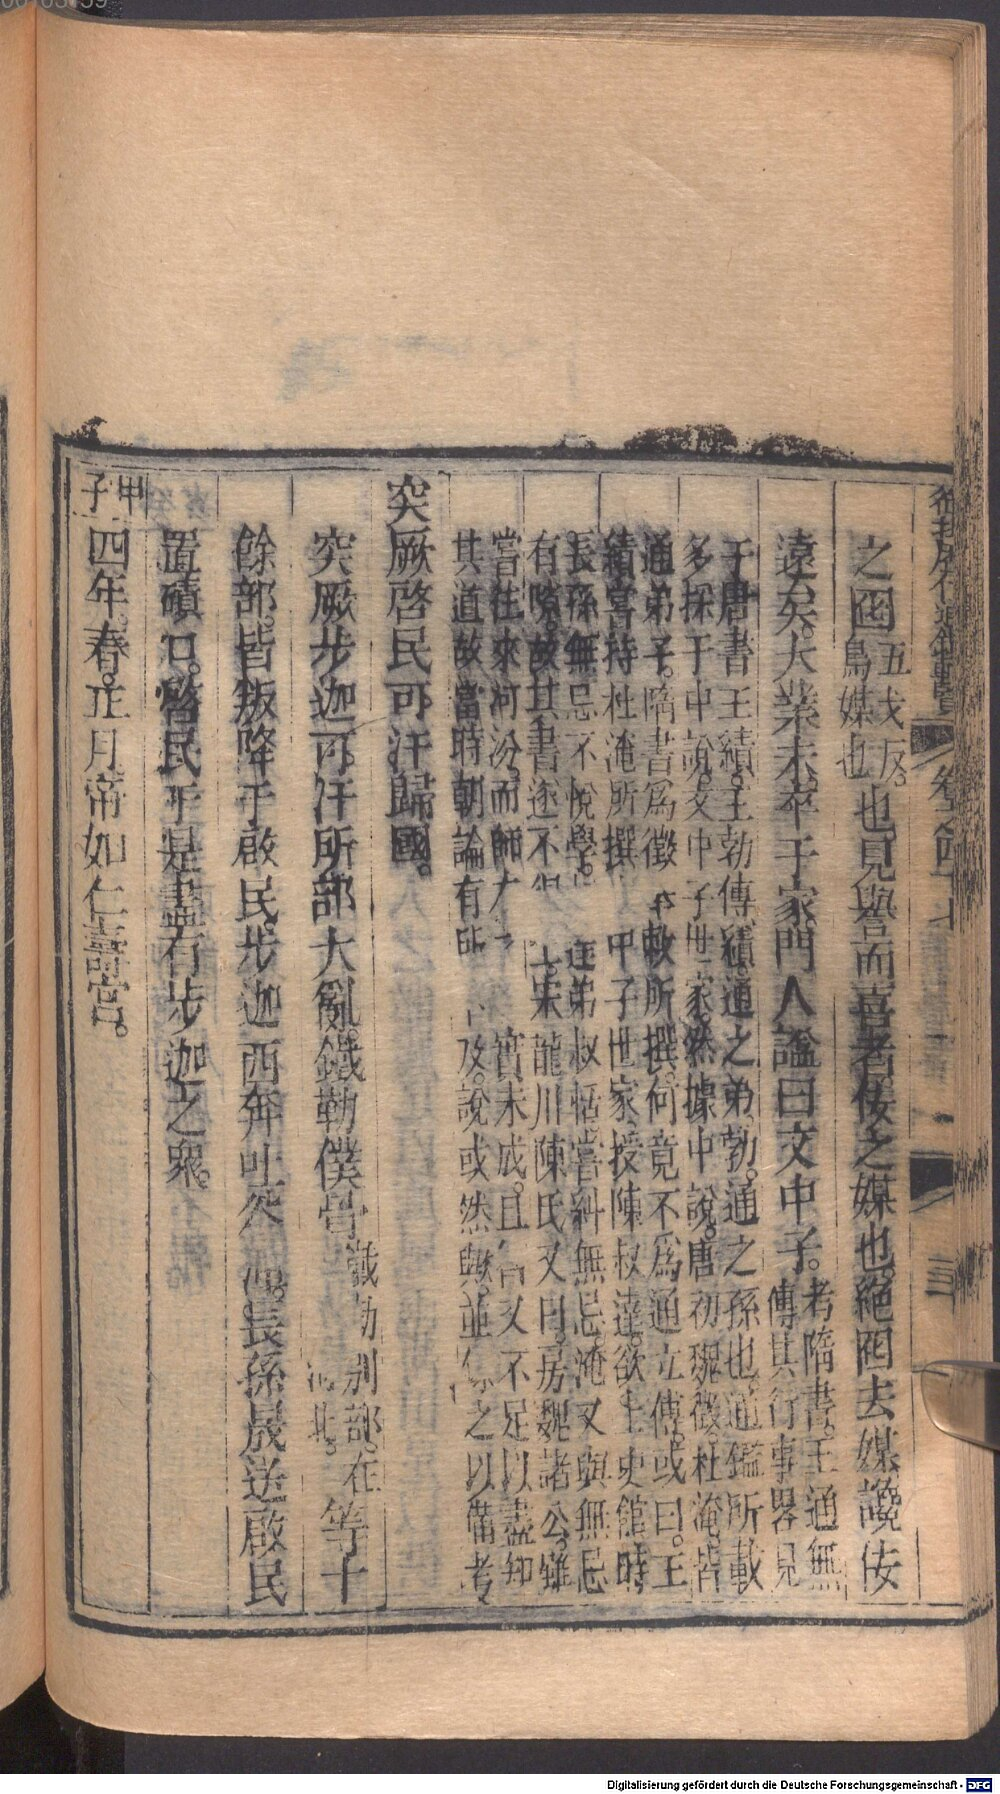 之囮五戈反。鳥媒也也。見譽而喜者。佞之媒也。絕囮去媒。讒佞
遠矣。大業末。卒于家。門人諡曰文中子。考隋書。王通無
傳。其行事畧見
于唐書王績。王勃傳。績。通之弟。勃。通之孫也。通鑑所載
多採于中說。文中子世家。然據中說。唐初魏徵。杜淹。皆
通弟子。隋書爲徵 敕所撰。何竟不爲通立傳。或曰。王
績嘗持杜淹所撰 中子世家。授陳叔達。欲上史館。時
長孫無忌不悅學。 弟叔恬。嘗糾無忌。淹又與無忌
有隙。故其書遂不 龍川陳氏又曰。房魏諸公。雖
嘗往來河汾。而師 實未成。且 又不足以盡知
其道。故當時朝論有 及。說或然與。並 之以備考
突厥啓民可汗歸國。
突厥步迦可汗所部大亂。鐵勒僕骨鐵勒別部。在 北。等十
餘部。皆叛降于啟民。步迦西奔吐谷渾。長孫晟送啟民
置磧口。啓民于是盡有步迦之衆。
甲子四年。春。正月。帝如仁壽宮。
卷之四十七
Digitalisierung gefördert durch die Deutsche Forschungsgemeinschaft - DFG